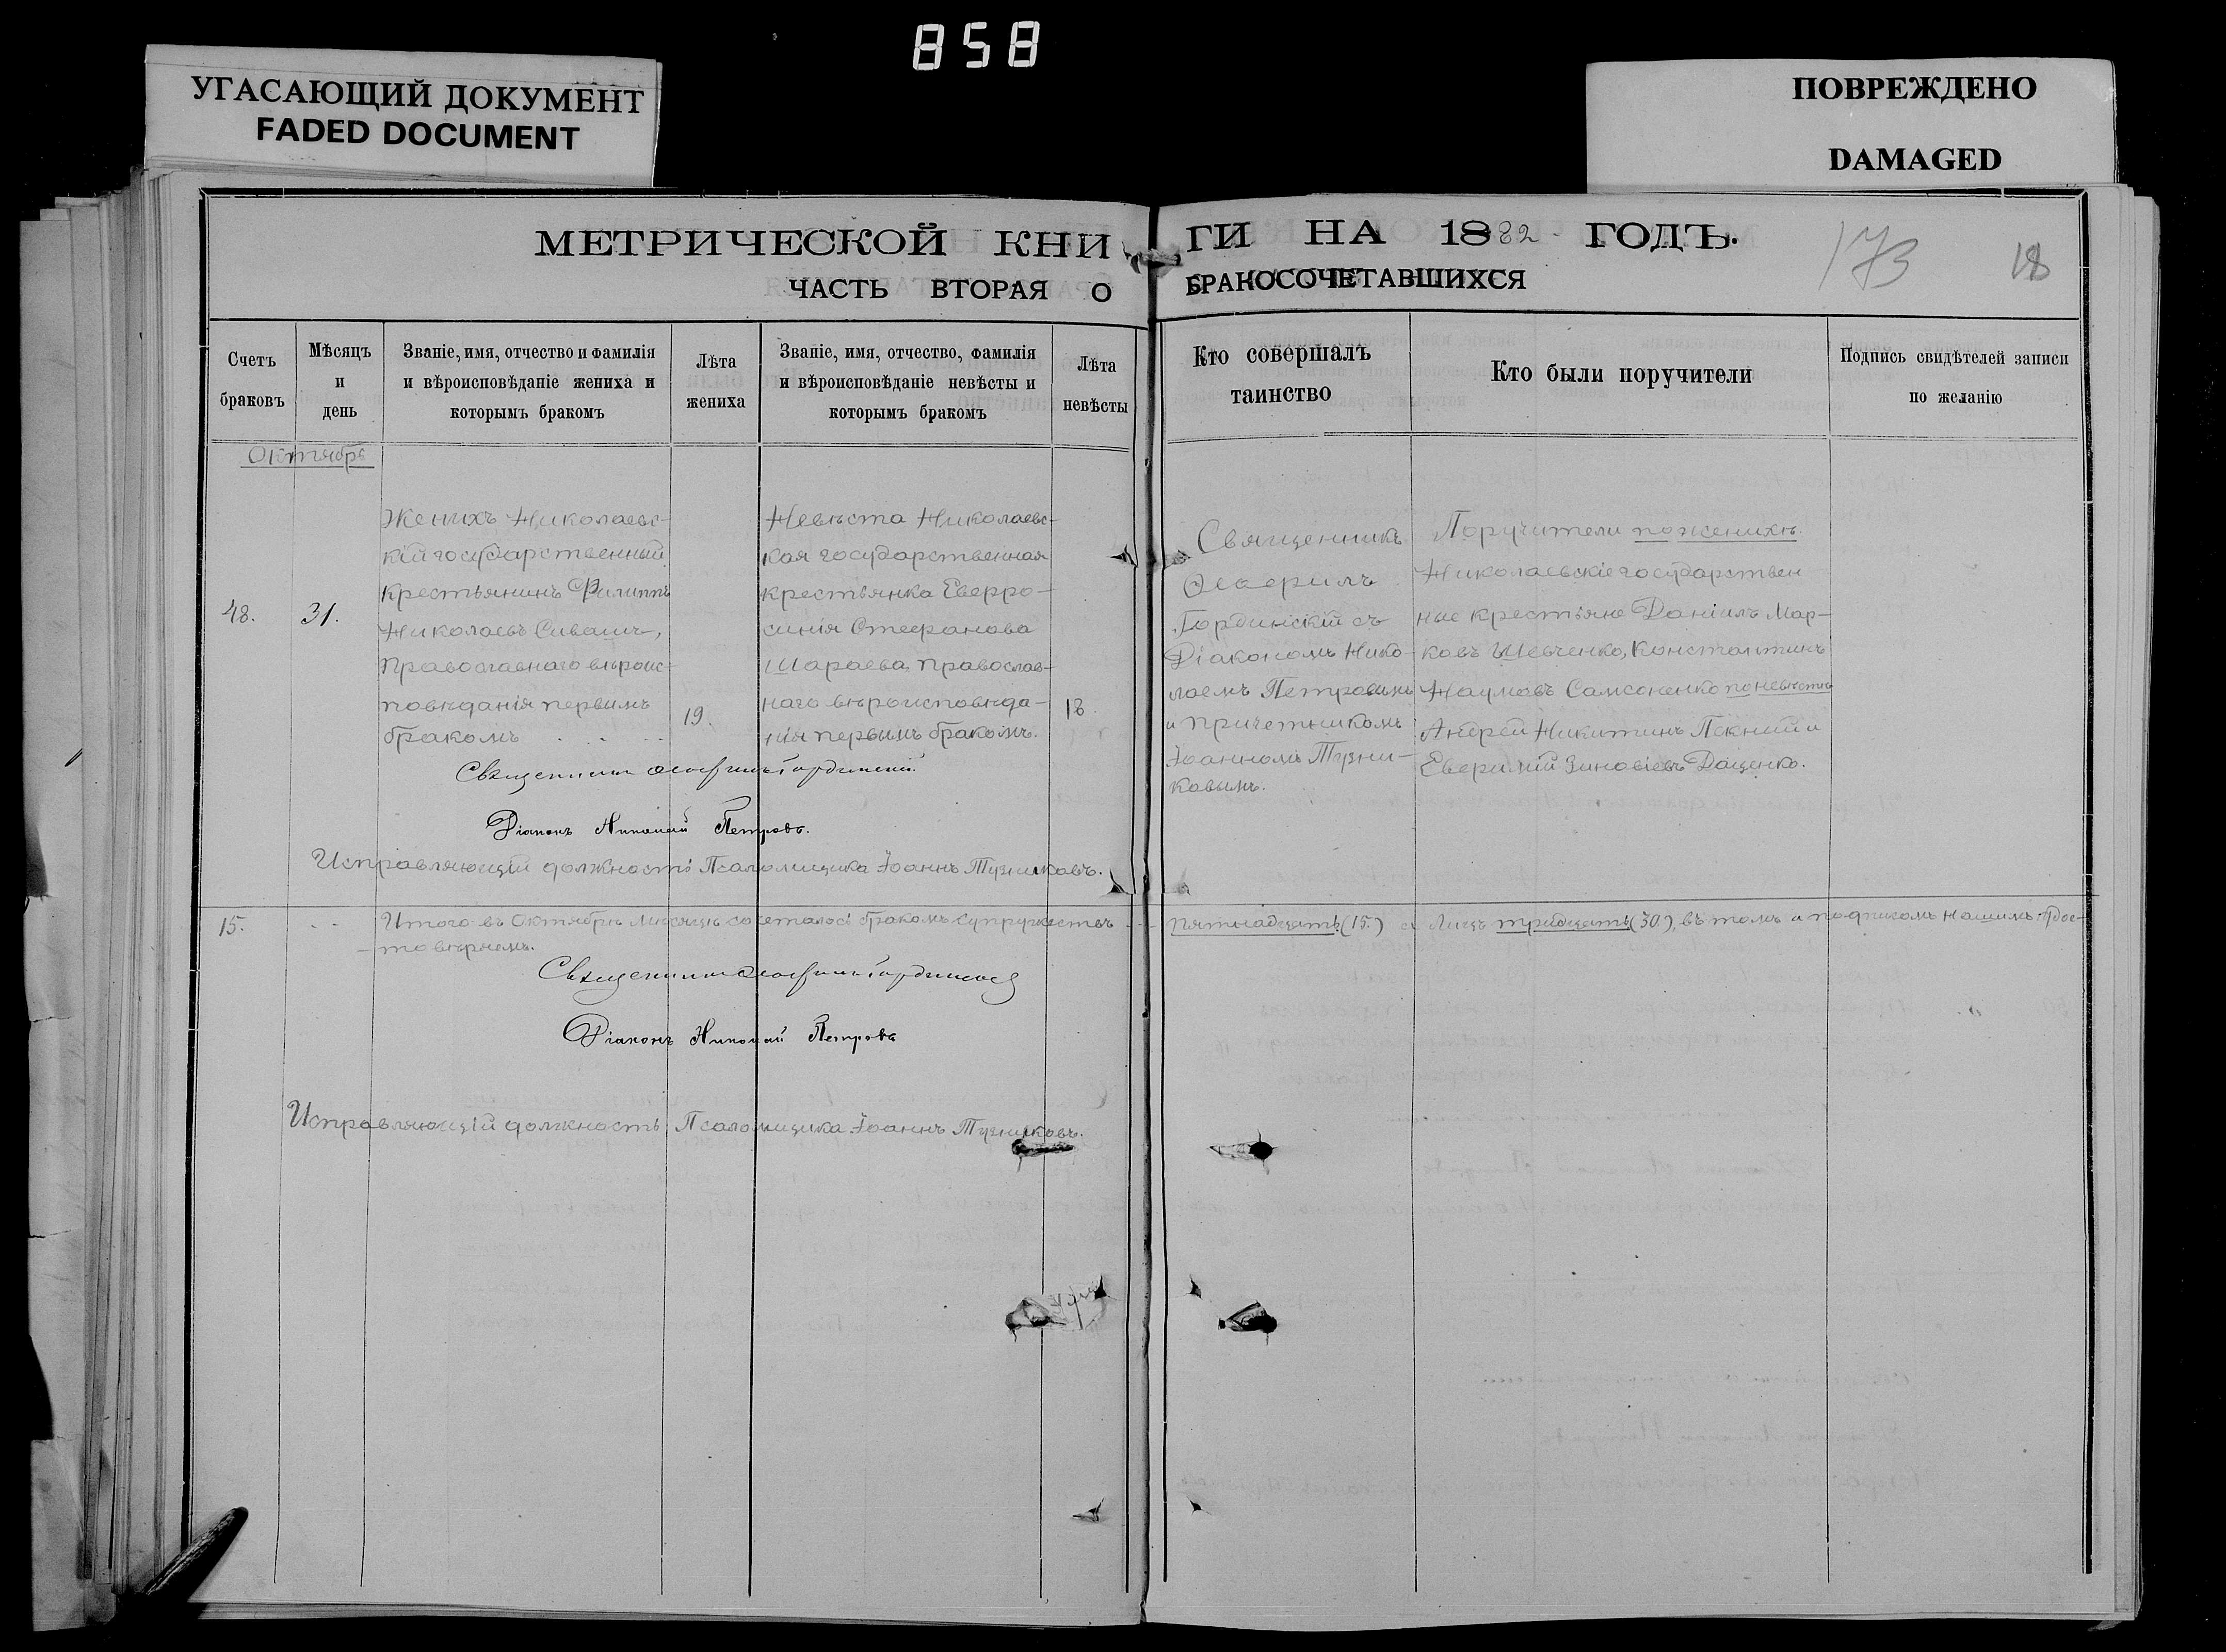 858
УГАСАЮЩИЙ ДОКУМЕНТ
FADED DOCUMENT
ПОВРЕЖДЕНО
DAMAGED
МЕТРИЧЕСКОЙ КНИГИ НА 1882 ГОДЪ.
173
18
ЧАСТЬ ВТОРАЯ О БРАКОСОЧЕТАВШИХСЯ
Счетъ
браковъ
Мѣсяцъ
и
день
Званіе, имя, отчество и фамилія
и вѣроисповѣданіе жениха и
которымъ бракомъ
Лѣта
жениха
Званіе, имя, отчество, фамилія
и вѣроисповѣданіе невѣсты и
которымъ бракомъ
Лѣта
невѣсты
Кто совершалъ
таинство
Кто были поручители
Подпись свидѣтелей записи
по желанію
Октябрь
48.
31.
Женихъ Николаевс-
кій государственный
крестьянинъ Филиппъ
Николаевъ Сивашъ,
Православнаго вѣроис-
повѣданія первымъ
бракомъ
19.
Невѣста Николаевс-
кая государственная
крестьянка Евфро-
синія Стефанова
Шараева, Православ-
наго вѣроисповѣда-
нія первымъ бракомъ.
18.
Священникъ
Ѳеофилъ
Гординскій съ
Діакономъ Нико-
лаемъ Петровымъ
и причетникомъ
Іоанномъ Тузни-
ковымъ.
Поручители по женихѣ:
Николаевскіе государствен
ные крестьяне Даніилъ Мар-
ковъ Шевченко, Константинъ
Наумовъ Самсоненко по невѣстѣ
Андрей Никитинъ Пекний и
Евфимій Зиновіевъ Даценко.
Священникъ Ѳеофилъ Гординскій.
Діаконъ Николай Петровъ.
Исправляющій должность Псаломщика Іоаннъ Тузниковъ.
15.
Итого въ Октябрѣ Мѣсяцѣ сочеталось бракомъ супружествъ пятнадцать (15.) а лицъ тридцать (30.), въ томъ и подписомъ нашимъ: Удос-
товѣряемъ.
Священникъ Ѳеофилъ Гординскій
Діаконъ Николай Петровъ
Исправляющій должность Псаломщика Іоаннъ Тузниковъ.